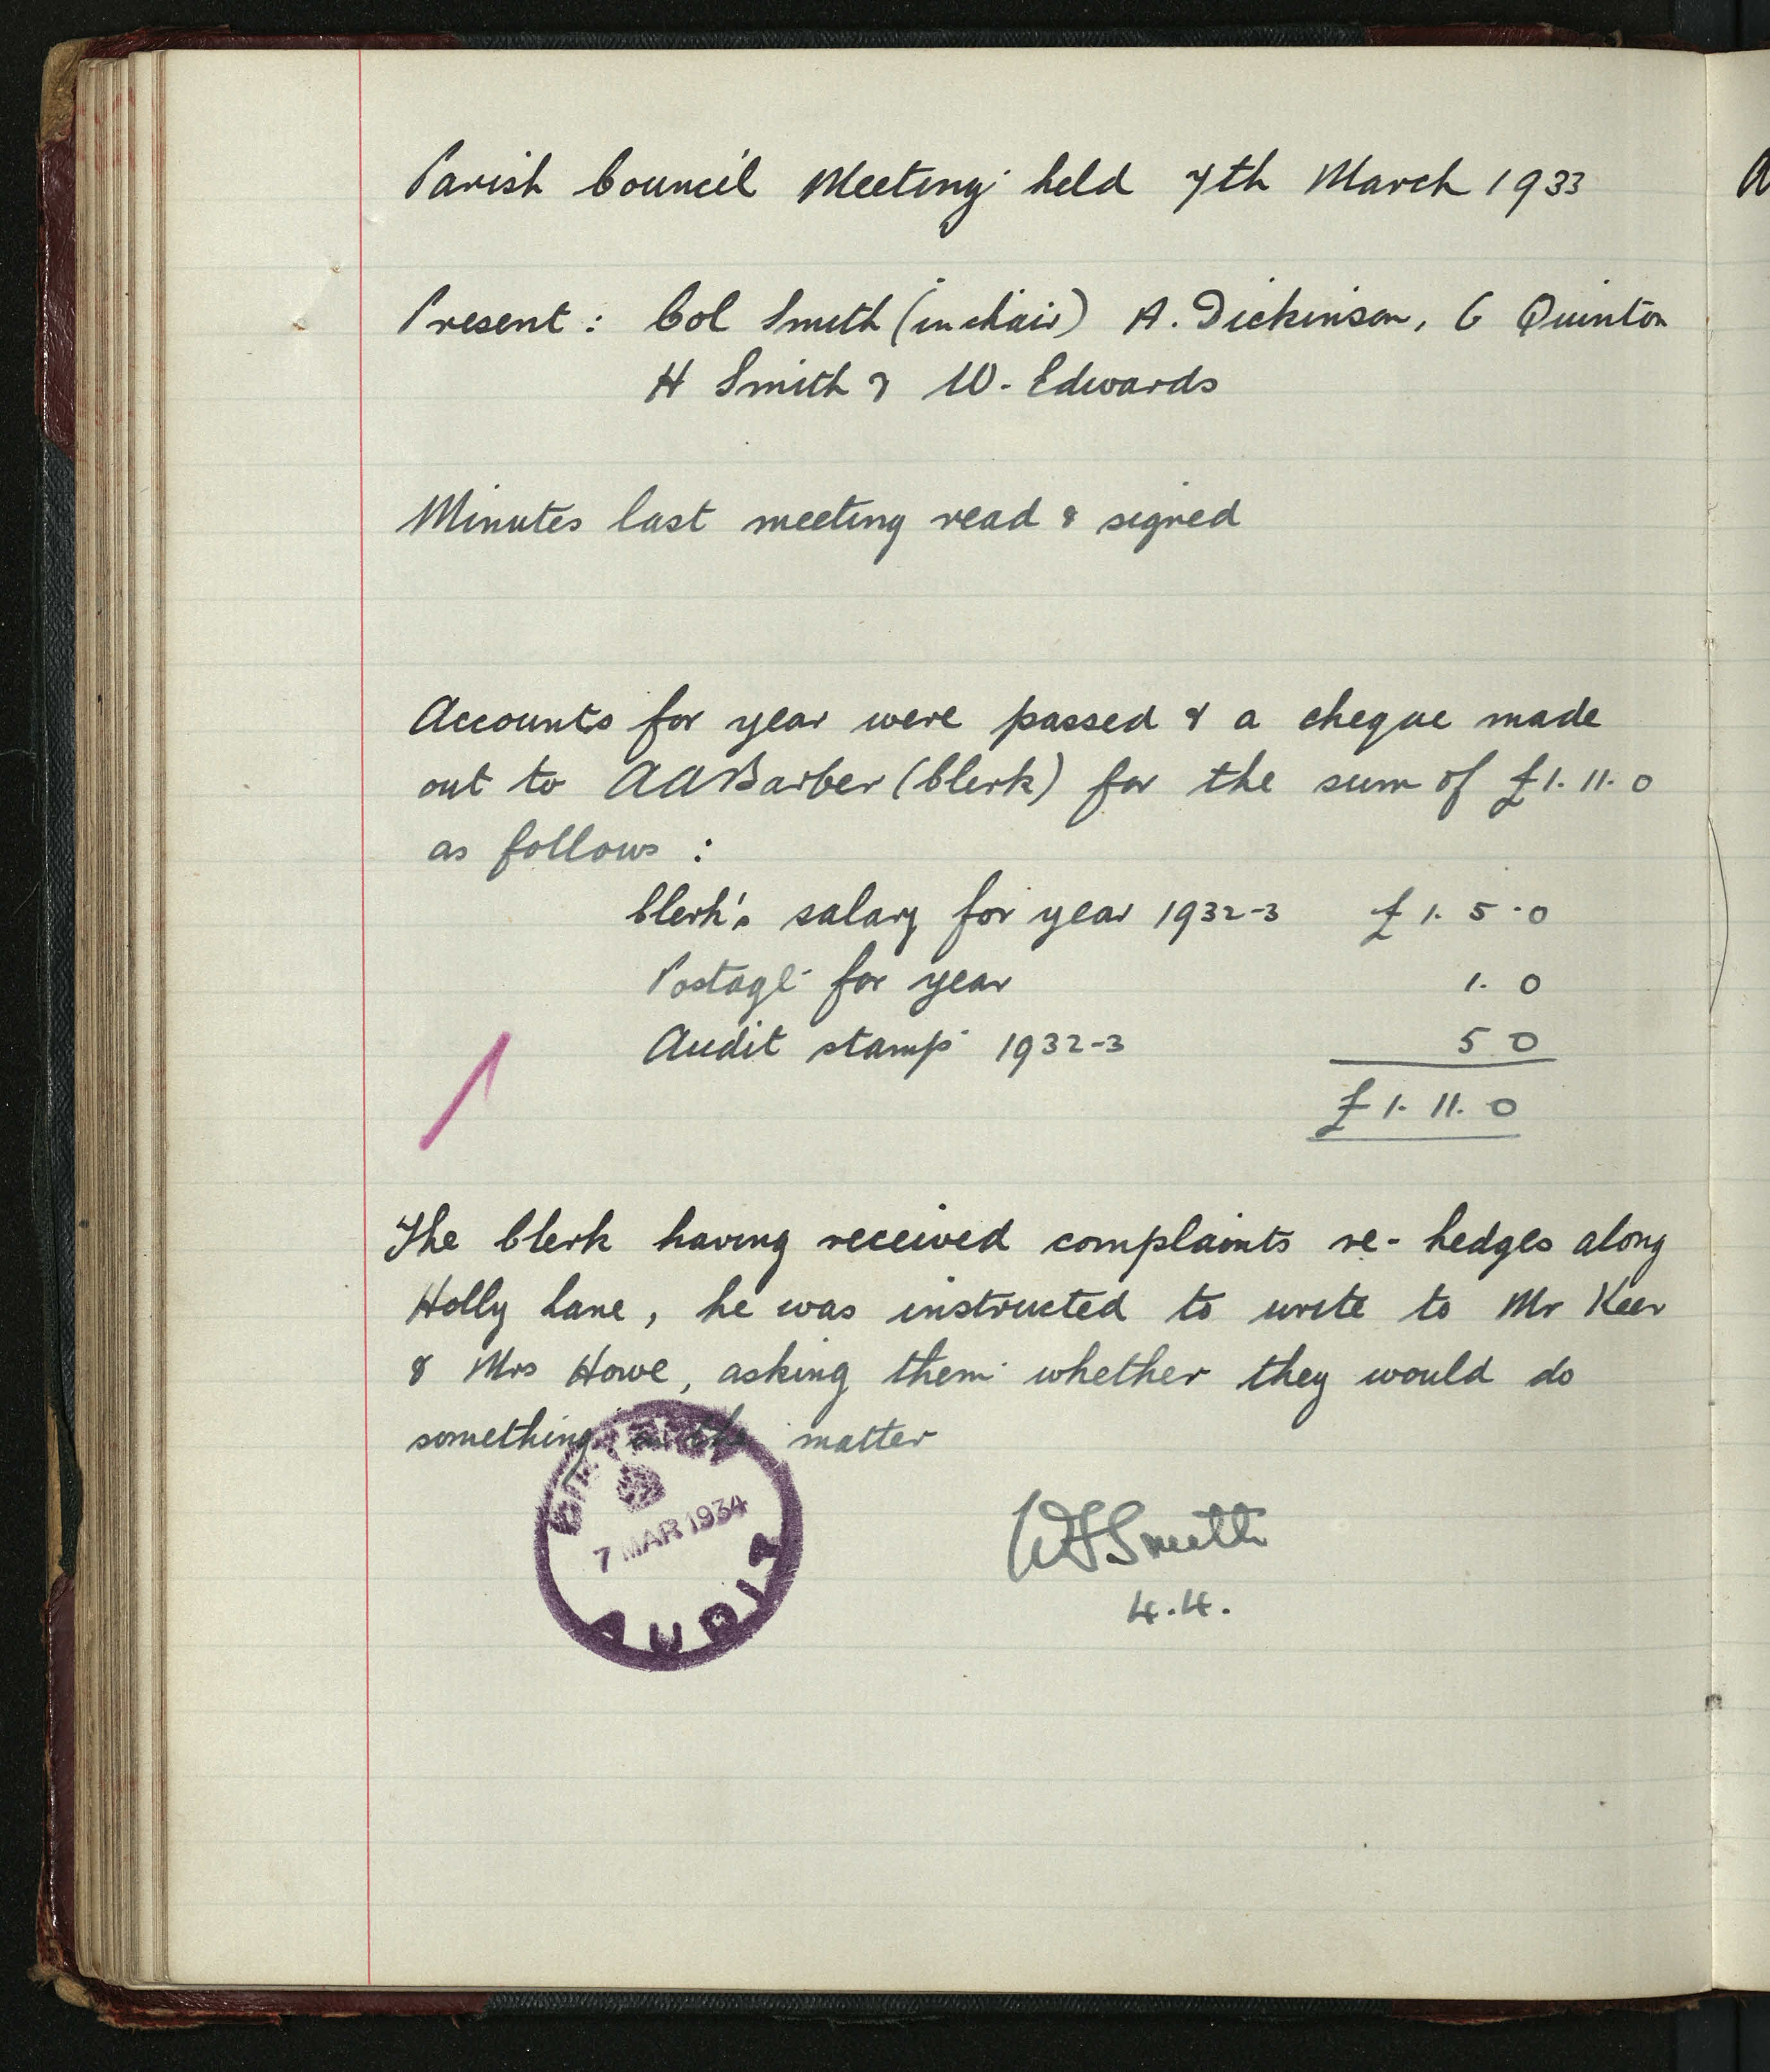 Parish Council Meeting held 7th March 1933
Present: Col Smith (in chair) A. Dickinson, G Quinton
H Smith & W. Edwards
Minutes last meeting read & signed
Accounts for year were passed & a cheque made
out to AABarber (Clerk) for the sum of £1. 11. 0
as follows:
Clerk's salary for year 1932-3 £1. 5. 0
Postage for year 1. 0
Audit stamp 1932-3 5 0
£1. 11. 0
The Clerk having received complaints re- hedges along
Holly Lane, he was instructed to write to Mr Keer
& Mrs Howe, asking them whether they would do
something in the matter
7 MAR 1934
AUDIT
Smith
4.4.